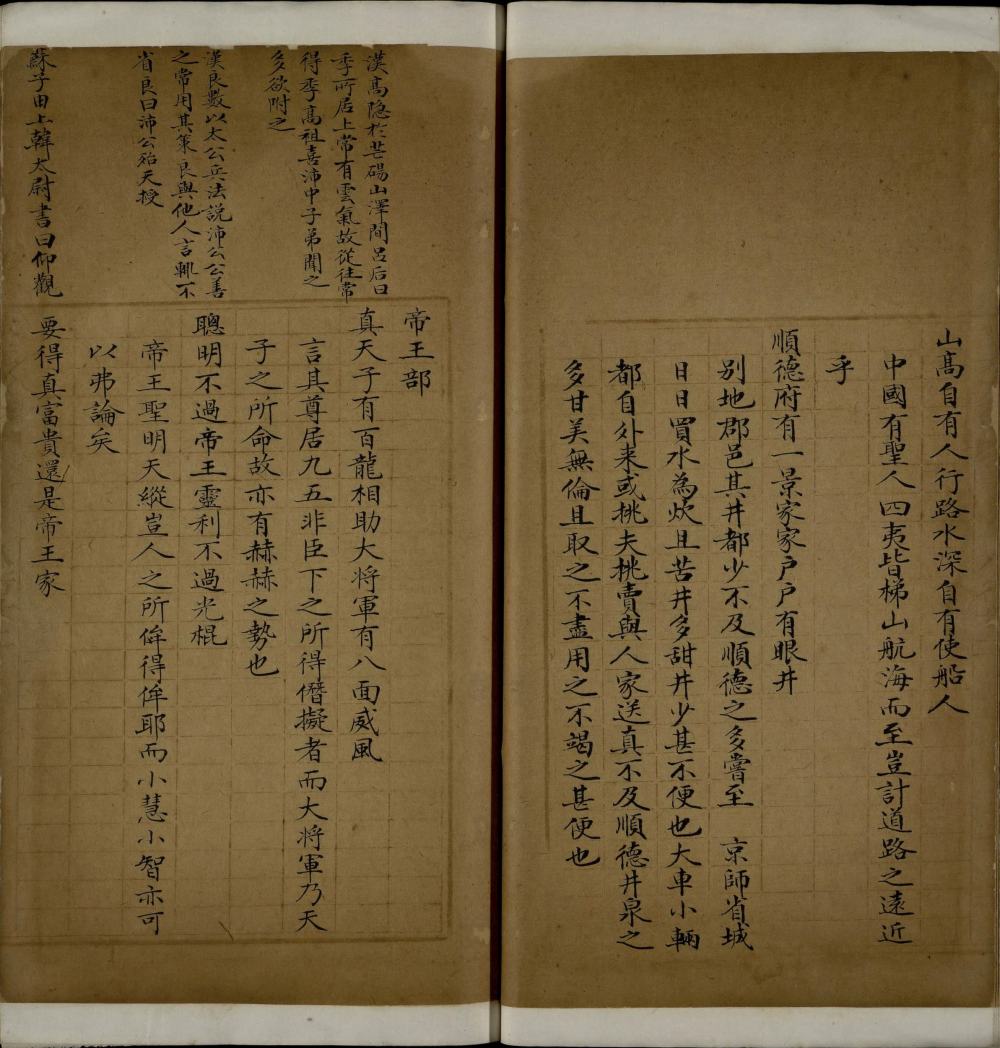 山高自有人行路水深自有使船人
中國有聖人四夷皆梯山航海而至豈計道路之遠近
乎
順德府有一景家家户户有眼井
別地郡邑其井都少不及順德之多嘗至　京師省城
日日買水為炊且苦井多甜井少甚不便也大車小輛
都自外来或挑夫挑賣與人家送真不及順德井泉之
多甘美無倫且取之不盡用之不竭之甚便也
漢高隐扵芒碭山澤間吕后曰
季所居上常有雲氣故從往常
得季高祖喜沛中子弟聞之
多欲附之
漢良數以太公兵法説沛公公善
之常用其策良與他人言輒不
省良曰沛公殆天授
蘇子由上韓太尉書曰仰觀
帝王部
真天子有百龍相助大将軍有八面威風
言其尊居九五非臣下之所得僭擬者而大将軍乃天
子之所命故亦有赫赫之勢也
聰明不過帝王靈利不過光棍
帝王聖明天縱豈人之所侔得侔耶而小慧小智亦可
以弗論矣
要得真富貴還是帝王家